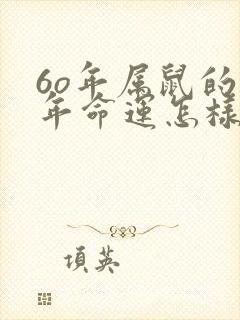 60年属鼠的
年命运怎样
項英